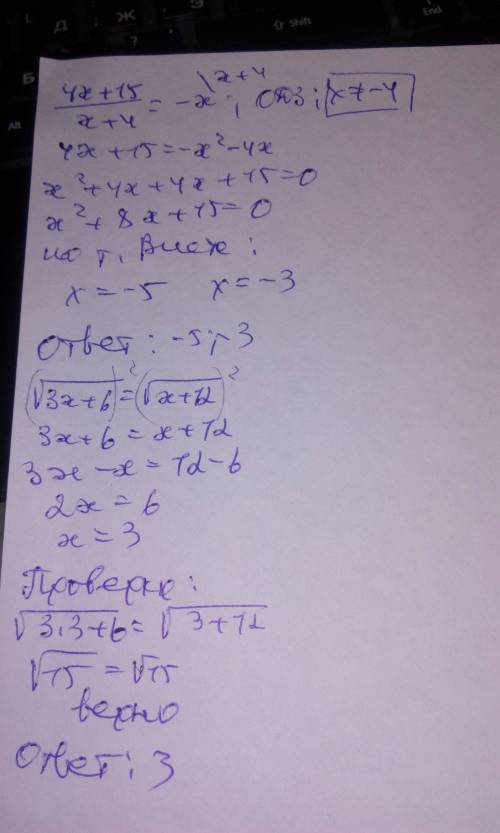 Б
Д
Ж
?
Alt
⇧ Shift
End
\x+4
(4x+15)/(x+4) = -x ; ОДЗ: x≠-4
4x+15=-x²-4x
x²+4x+4x+15=0
x²+8x+15=0
по т. Виета:
x=-5 x=-3
Ответ: -5; -3
(√3x+6)²=(√x+12)²
3x+6=x+12
3x-x=12-6
2x=6
x=3
Проверка:
√3·3+6=√3+12
√15=√15
верно
Ответ: 3